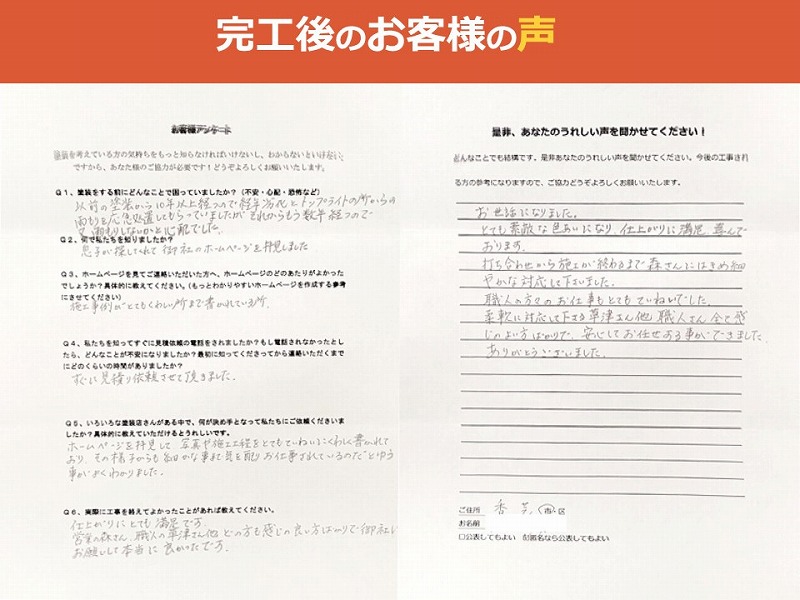 完工後のお客様の声
お客様アンケート
塗装を考えている方の気持ちをもっと知らなければいけないし、わからないといけない
ですから、あなた様のご協力が必要です!どうぞよろしくお願いいたします。
Q1、塗装をする前にどんなことで困っていましたか?(不安・心配・恐怖など)
以前の塗装から10年以上経つので経年劣化とトップライトの所からの
雨もりを応急処置してもらっていましたがそれからもう数年経つので
又雨もりしないかと心配でした。
Q2、何で私たちを知りましたか?
息子が探してくれて御社のホームページを拝見しました
Q3、ホームページを見てご連絡いただいた方へ、ホームページのどのあたりがよかった
でしょうか?具体的に教えてください。(もっとわかりやすいホームページを作成する参考
にさせてください)
施工事例がとてもくわしい所まで書かれている所。
Q4、私たちを知ってすぐに見積依頼の電話をされましたか?もし電話されなかったとし
たら、どんなことが不安になりましたか?最初に知ってくださってから連絡いただくまで
にどのくらいの時間がありましたか?
すぐに見積り依頼させて頂きました。
Q5、いろいろな塗装店さんがある中で、何が決め手となって私たちにご依頼くださいま
したか?具体的に教えていただけるとうれしいです。
ホームページを拝見して写真や施工工程をとてもていねいにくわしく書かれて
おり その様子からも細かな事まで気を配りお仕事されているのだとゆう
事がよくわかりました。
Q6、実際に工事を終えてよかったことがあれば教えてください。
仕上がりにとても満足です。
営業の森さん、職人の草津さん他どの方も感じの良い方ばかりで御社に
お願いして本当に良かったです。
是非、あなたのうれしい声を聞かせてください!
どんなことでも結構です。是非あなたのうれしい声を聞かせてください。今後の工事され
る方の参考になりますので、ご協力どうぞよろしくお願いいたします。
お世話になりました。
とても素敵な色あいになり 仕上がりに満足 喜んで
おります。
打ち合わせから施工が終わるまで森さんにはきめ細
やかな対応して下さいました。
職人の方々のお仕事もとてもていねいでした。
柔軟に対応して下さる草津さん他 職人さん全て感
じのよい方ばかりで、安心してお任せする事ができました
ありがとうございました。
ご住所 香芝 市・区
お名前
口公表してもよい 匿名なら公表してもよい